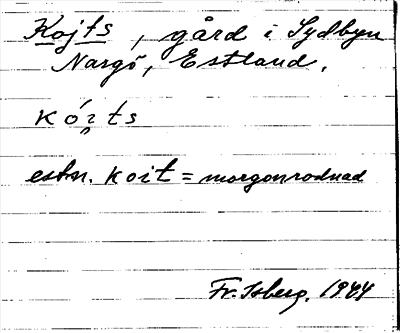 Kojts, gård i Sydbyn
Nargö, Estland.
kó̤ıts
estn. koit = morgonrodnad
Fr. Isberg. 1944